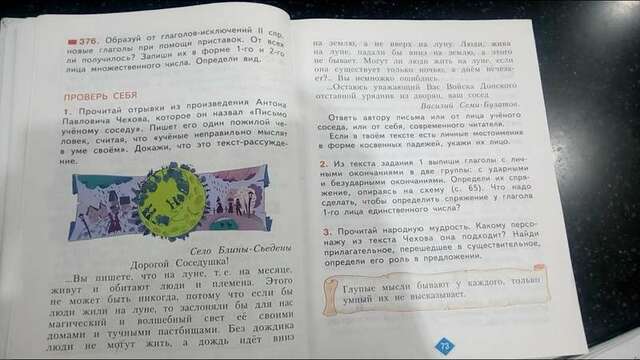 376. Образуй от глаголов-исключений II спр.
новые глаголы при помощи приставок. От всех
ли получилось? Запиши их в форме 1-го и 2-го
лица множественного числа. Определи вид.
ПРОВЕРЬ СЕБЯ
1. Прочитай отрывки из произведения Антона
Павловича Чехова, которое он назвал «Письмо
учёному соседу». Пишет его один пожилой че-
ловек, считая, что «учёные неправильно мыслят
в уме своём». Докажи, что это текст-рассужде-
ние.
Село Блины-Съедены
Дорогой Соседушка!
...Вы пишете, что на луне, т. е. на месяце,
живут и обитают люди и племена. Этого
не может быть никогда, потому что если бы
люди жили на луне, то заслоняли бы для нас
магический и волшебный свет её своими
домами и тучными пастбищами. Без дождика
люди не могут жить, а дождь идёт вниз
на землю, а не вверх на луну. Люди, живя
на луне, падали бы вниз на землю, а этого
не бывает. Могут ли люди жить на луне, если
она существует только ночью, а днём исчеза-
ет?.. Вы немножко ошиблись.
...Остаюсь уважающий Вас Войска Донского
отставной урядник из дворян, ваш сосед
Василий Семи-Булатов.
Ответь автору письма или от лица учёного
соседа, или от себя, современного читателя.
Если в твоём тексте есть личные местоимения
в форме косвенных падежей, укажи их лицо.
2. Из текста задания 1 выпиши глаголы с лич-
ными окончаниями в две группы: с ударными
и безударными окончаниями. Определи их спря-
жение, опираясь на схему (с. 65). Что надо
сделать, чтобы определить спряжение у глагола
1-го лица единственного числа?
3. Прочитай народную мудрость. Какому персо-
нажу из текста Чехова она подходит? Найди
прилагательное, перешедшее в существительное,
определи его роль в предложении.
Глупые мысли бывают у каждого, только
умный их не высказывает.
73